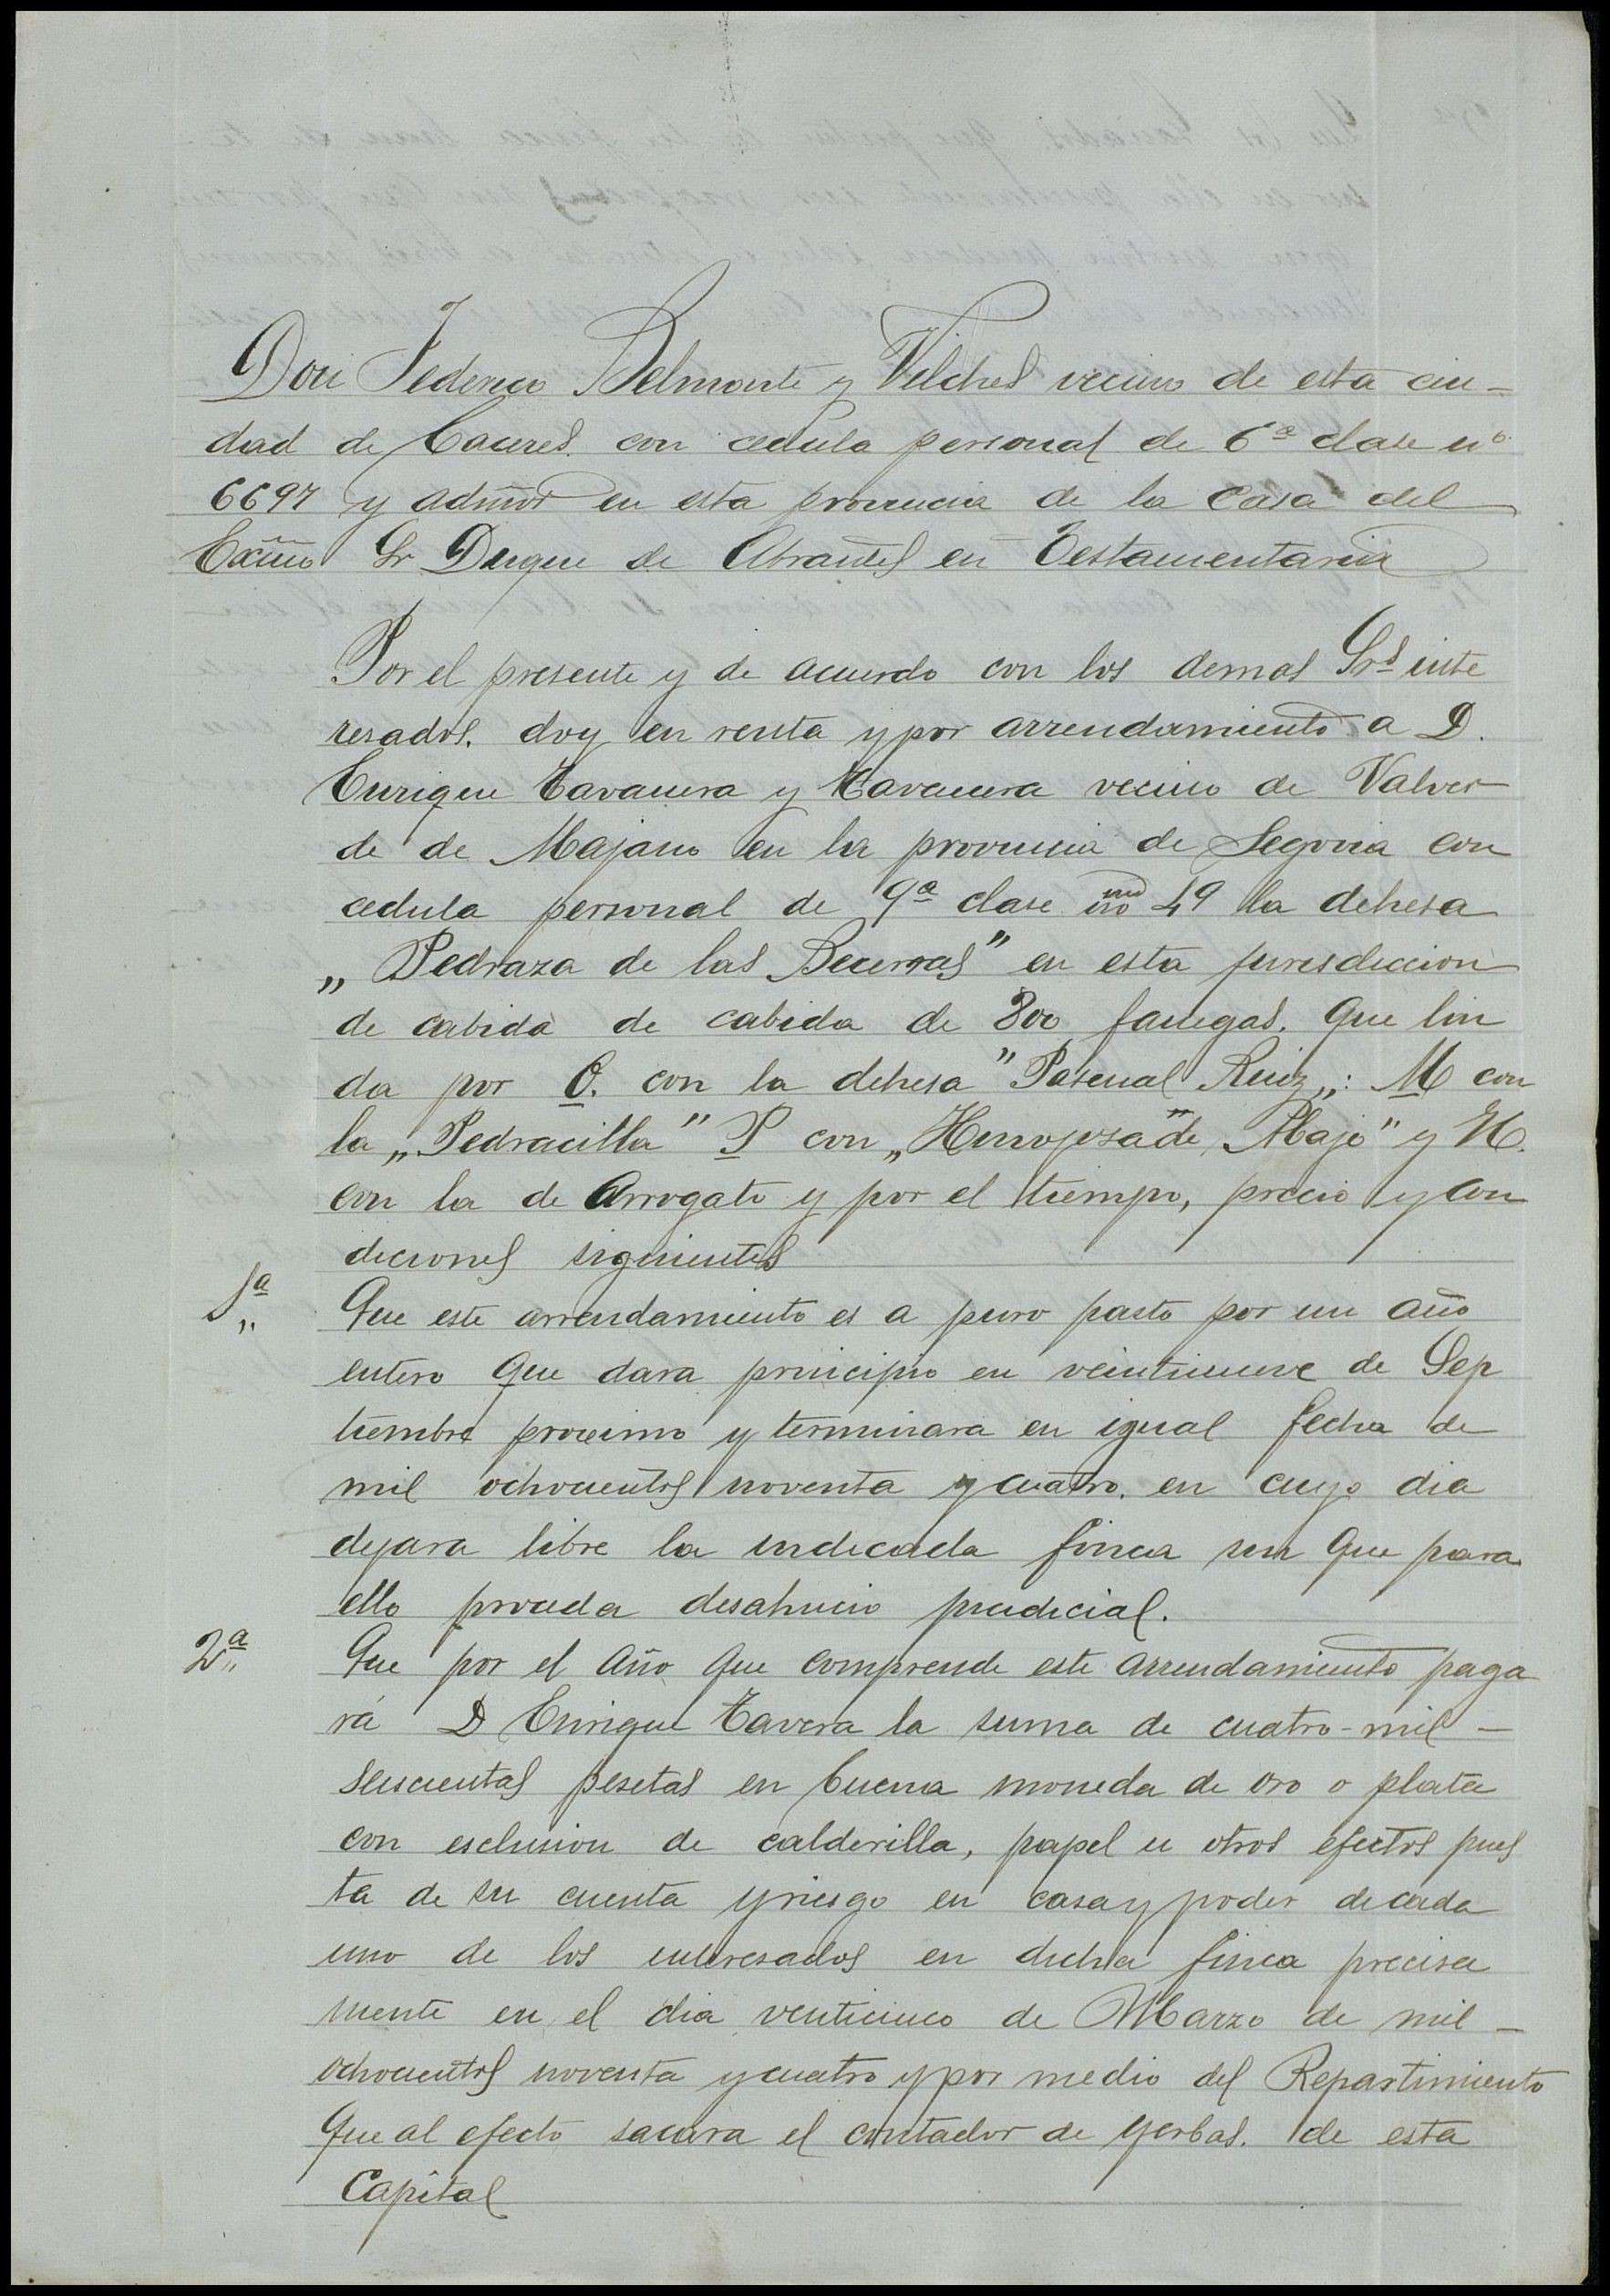 Don Federico Belmonte y Vilches vecino de esta ciu-
dad de Caceres. con cedula personal de 6ª clase nº
6697 y admor en esta provincia de la Casa del
Excmo Sr Duque de Abrantes en Testamentaria
Por el presente y de acuerdo con los demas Srs inte
resados. doy en renta y por arrendamiento a D.
Enrique Tavanera y Tavanera vecino de Valver
de de Majano en la provincia de Segovia con
cedula personal de 9ª clase nº 49 la dehesa
„Pedraza de las Becerras" en esta jurisdiccion
de cabida de cabida de 800 fanegas. que lin
da por O. con la dehesa "Pascual Ruiz„: M con
la „Pedracilla" P con „Hinojosa de Abajo" y N.
con la de Arrogato y por el tiempo, precio y con
diciones siguientes
1ª„ Que este arrendamiento es a puro pasto por un año
entero que dara principio en veintinueve de Sep
tiembre proximo y terminara en igual fecha de
mil ochocientos noventa y cuatro. en cuyo dia
dejara libre la indicada finca sin que para
ello proceda desahucio judicial.
2ª„ Que por el año que comprende este arrendamiento paga
rá D Enrique Tavera la suma de cuatro-mil-
seiscientas pesetas en buena moneda de oro o plata
con esclusion de calderilla, papel u otros efectos pues
ta de su cuenta y riesgo en casa y poder de cada
uno de los interesados en dicha finca precisa
mente en el dia venticinco de Marzo de mil-
ochocientos noventa y cuatro y por medio del Repartimiento
que al efecto sacara el contador de yerbas. de esta
Capital